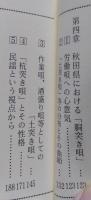 第四章　秋田県における「胴突き唄」
① 労働唄への心意気
③ 作業唄、酒盛り唄等としての「土突き唄」 145
④ 「杭突き唄」とその性格 171
⑤ 民謡という視点から 188